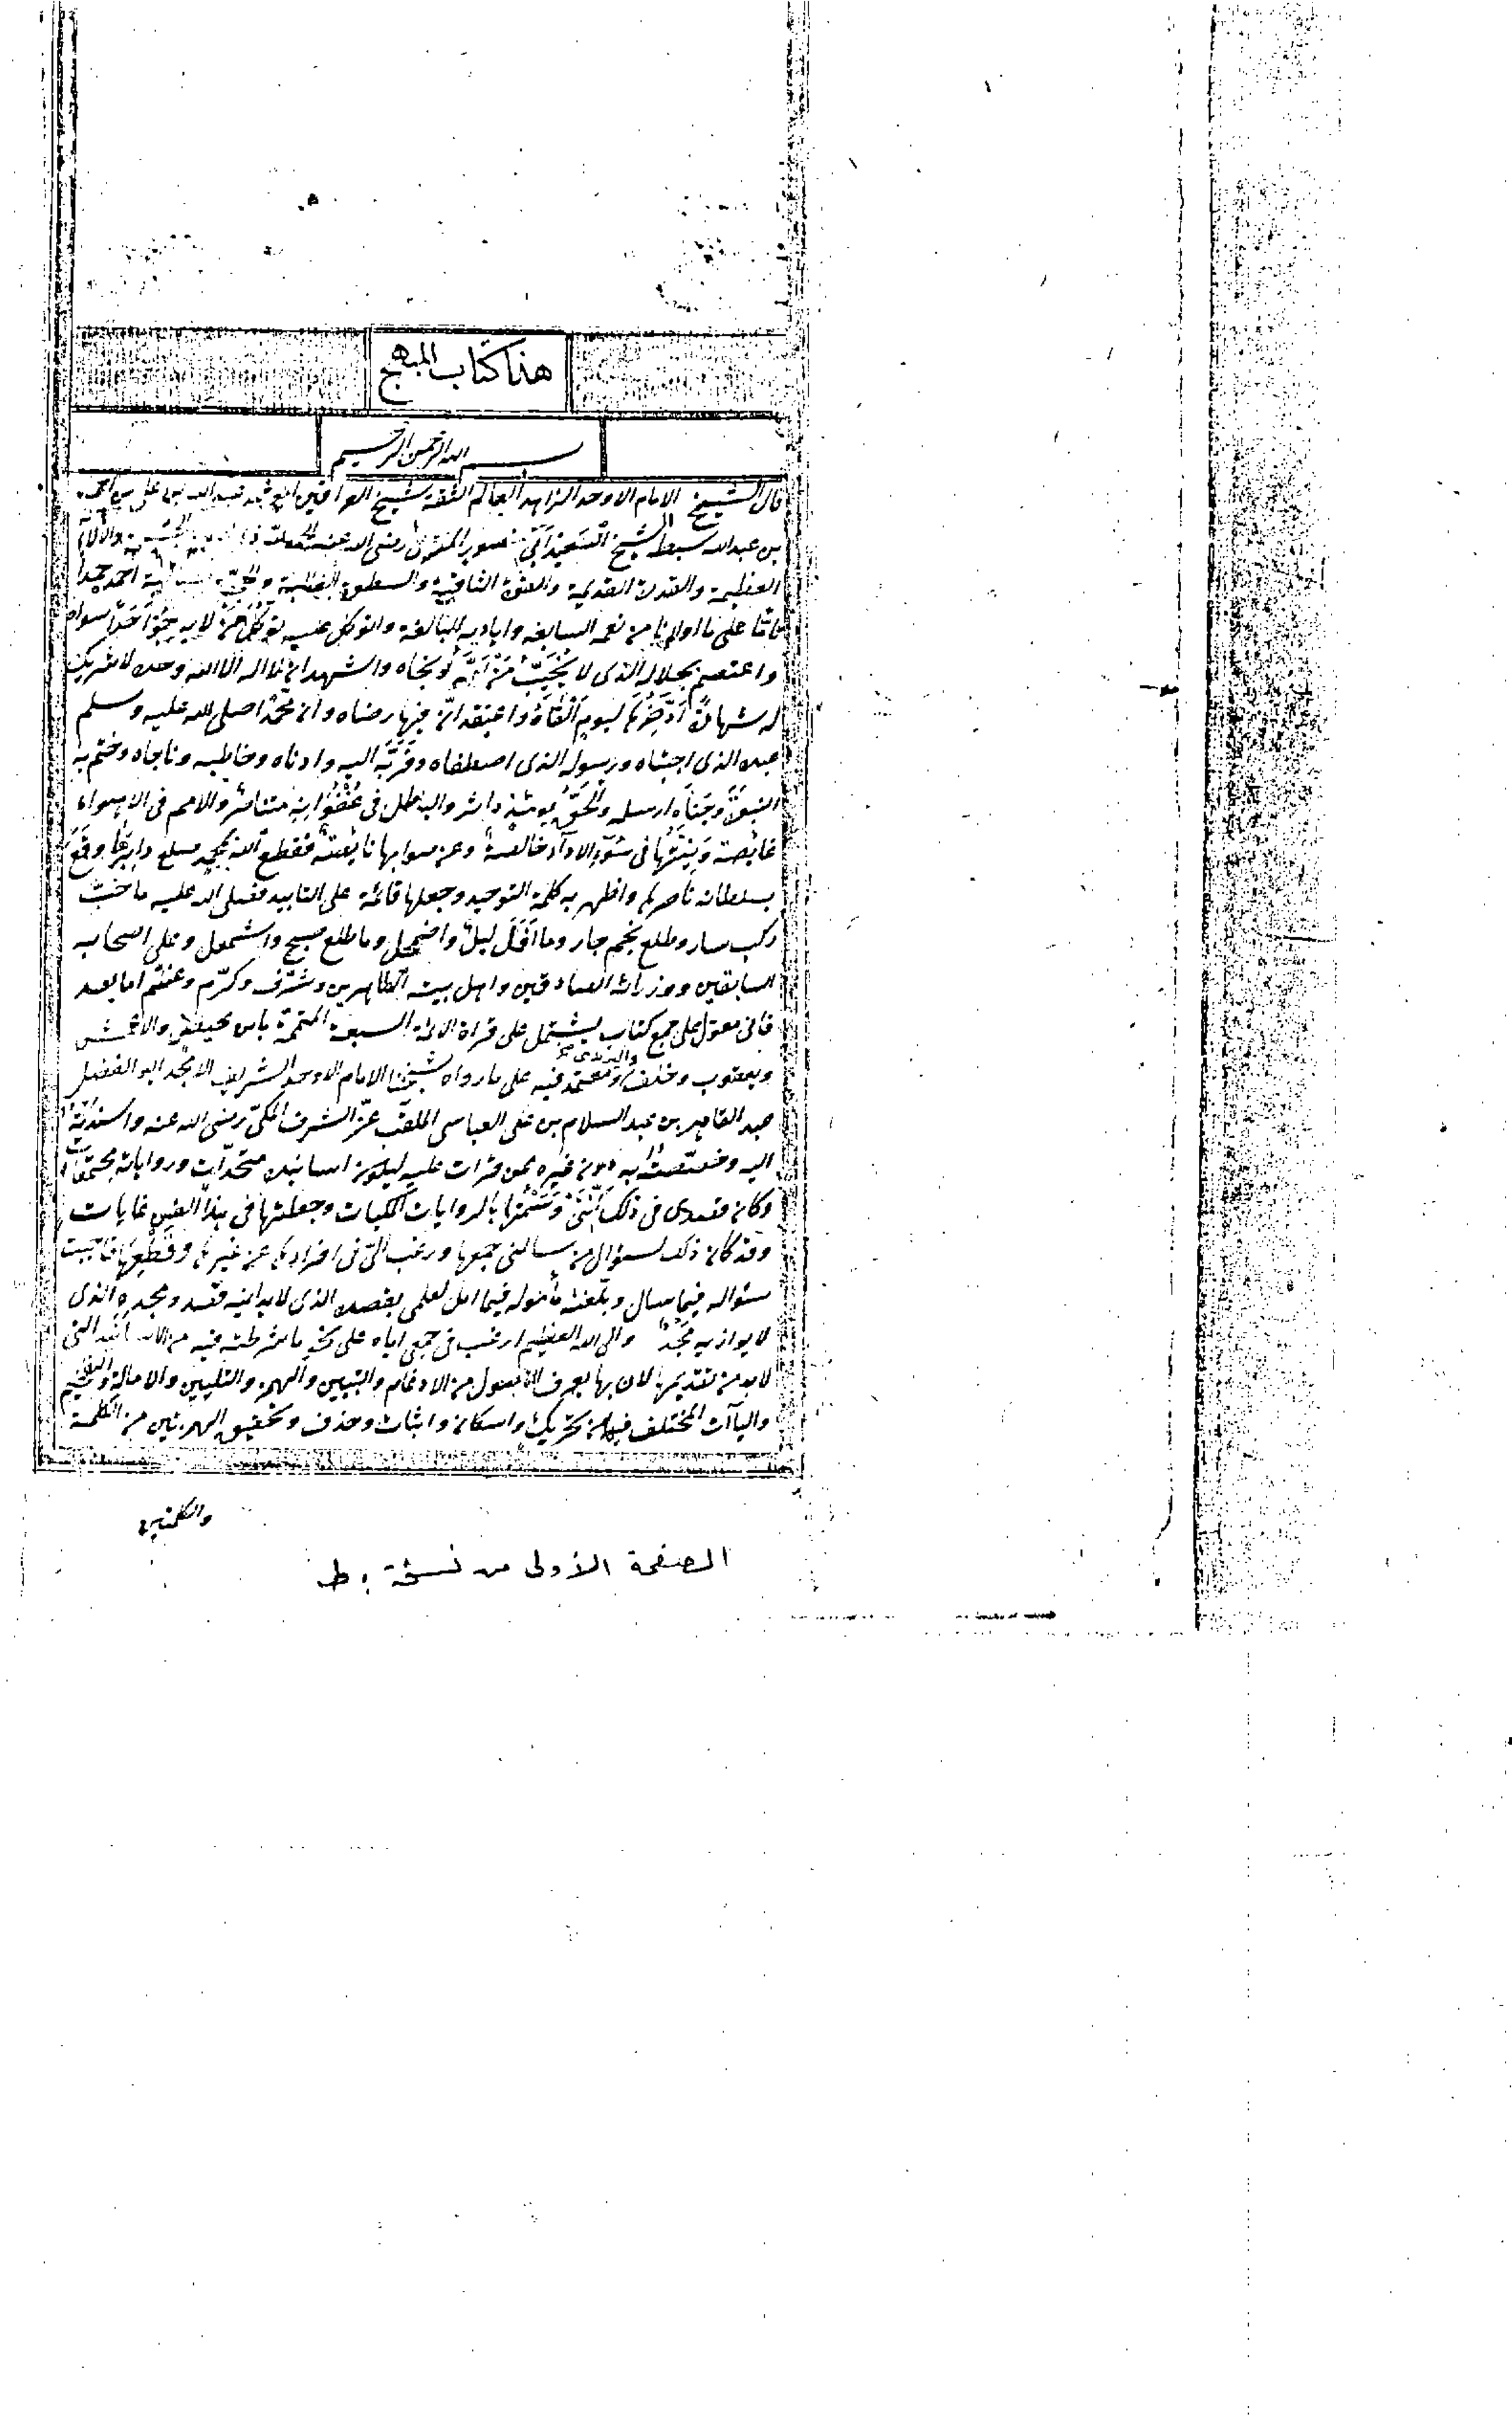 هذا كتاب المبهج
بسم الله الرحمن الرحيم
قال الشيخ الامام الاوحد الزاهد العالم الثقة شيخ العراقين ابو محمد عبد الله بن علي بن احمد
بن عبدالله سبط الشيخ السعيد ابي منصور المقرئ رضى الله عنه الحمدلله ذى والآلاء
العظيمة والقدرة القديمة والسطوة الغالبة احمده حمداً
على ما اولانا من نعمه السابغة واياديه البالغة والتوكل عليه توكل من لا يرجو احدًا سواه
واعتصم بجلاله الذى لا يخيب من واشهد ان لا اله الا الله وحده لا شريك
له شهادة ادخرها ليوم القاه واعتقد ان فيها رضاه وان محمدًا صلى الله عليه وسلم
عبده الذى اجتباه ورسوله الذى اصطفاه وقربه اليه وادناه وخاطبه وناجاه وختم به
النبوة ارسله والحق يومئذ داثر والباطل فى عنفوانه متناثر والامم فى الاهواء
غايصة وعن صوابها فقطع الله بمحمد صلعم دابرها وقمع
بسلطانه ناصرها واظهر به كلمة التوحيد وجعلها قائمة على التابيد فصلى الله عليه ما خب
ركب سار وطلع نجم جار وما افل ليل واضمحل وما طلع صبح واشمعل وعلى اصحابه
السابقين ووزرائه الصادقين واهل بيته الطاهرين وشرف وكرم وعظم اما بعد
فانى معول على جمع كتاب يشتمل على قراة الائمة السبعة المتممة بابن محيصن والاعمش
ويعقوب وخلف واليزيدى ومعتمد فيه على ما رواه شيخنا الامام الاوحد الشريف الامجد ابو الفضل
عبد القاهر بن عبد السلام بن على العباسى الملقب عز الشرف المكى رضى الله عنه واسندته
اليه وخصصته به دون غيره ممن قرات عليه ليكون اسانيده متحدات ورواياته مجتمعات
وكان قصدى فى ذلك بالروايات الكليات وجعلتها فى هذا الفن غايات
وقد كان ذلك لسؤال من سالنى جمعها ورغب الىّ فى افرادها عن غيرها وقطعها فاجبت
سئواله فيما سال وبلغته مأموله فيما امل لعلمى بقصده الذى لا يدانيه قصد ومجده الذى
لا يوازيه مجد والى الله العظيم ارغب فى جمعى اياه على نحو ما شرطت فيه من الاسانيد التى
لا بد من تقديمها لان بها يعرف الاصول من الادغام والتبيين والهمز والتليين والامالة والتفخيم
والياآت المختلف فيها من تحريك واسكان واثبات وحذف وتحقيق الهمزتين من الكلمة
والكلمتين
الصفحة الأولى من نسخة : ط